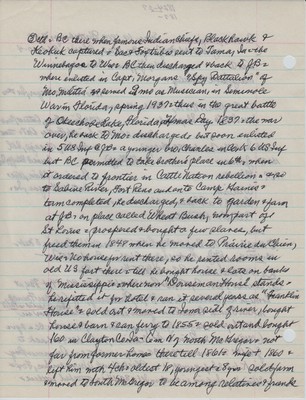 Dell + BC there when famous Indian Chiefs, Blackhawk &
Keokuk captured + Sac & Fox tribes sent to Tama, Ia + the
Winnebagoe to Wisc. BC then discharged + back to J.B +
where enlisted in Capt. Morgans "Spy Battalion" of
Mo. Militia served 5 mo as Musician, in Seminole
War in Florida, spring 1837; there in the great battle
of Okeechobee Lake, Florida, Xmas Day 1837 + the war
over, he back to Mo + discharged + but soon enlisted
in 5 US Inf @ JB + a younger bro, Charles in Clerk to US Inf
but BC permitted to take brothers place in 6th, when
it ordered to frontier in Cattle Nation rebellion + also
to Sabine River, Fort Reno and on to Camp Haines +
term completed, he discharged, + back to garden + farm
at JB, on place called Wheat Bush, now part of
St. Louis + prospered + bought a few places, but
freed them in 1848 when he moved to Prairie du Chien,
Wis + No house for rent there, so he rented rooms in
old U.S. fort there till he bought house + lots on banks
of Mississippi where now "Dousman House" stands +
he refitted it for hotel + ran it several years as "Franklin
House" + sold out + moved to town, bought
house & barn + ran ferry to 1855 + sold out and bought
160 in Clayton Co Ia 2 mi N of north McGregor not
far from former home there till 1861 + wife + 1860 +
left him with 4 ch + oldest 18, youngest 2 yrs + sold farm
+ moved to North McGregor to be among relatives + friends